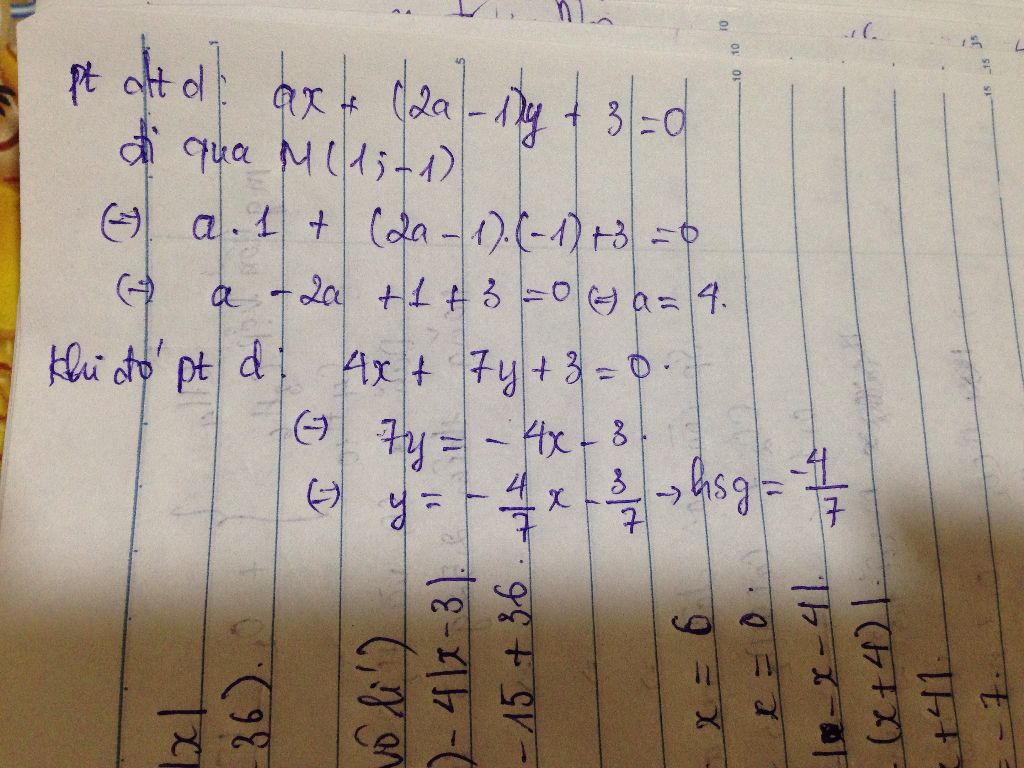 pt đtd: ax + (2a - 1)y + 3 = 0
đi qua M(1; -1)
(=) a . 1 + (2a - 1).(-1) + 3 = 0
(=) a - 2a + 1 + 3 = 0 (=) a = 4.
Khi đó pt d: 4x + 7y + 3 = 0.
(=) 7y = - 4x - 3.
(=) y = - 4/7 x - 3/7 → hsg = -4/7
|x|
36).
vô lí)
) - 4|x - 3|.
- 15 + 36.
x = 6
x = 0.
- x - 4|.
(x + 4)|
+ 4|.
= - 7.
5
10
10
15
15